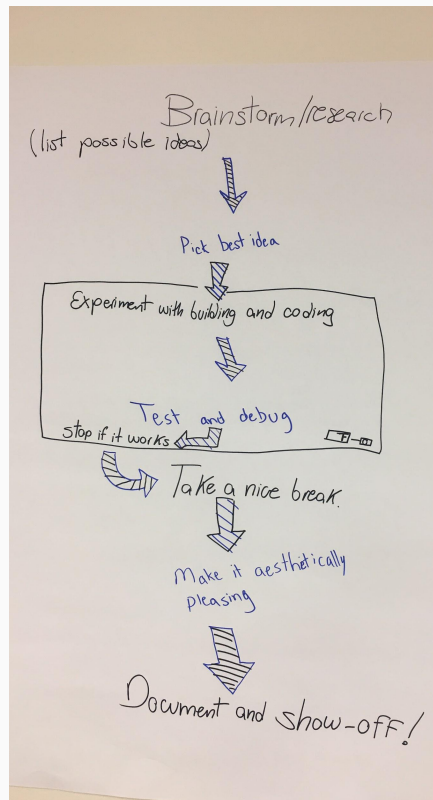 Brainstorm/research
(list possible ideas)
Pick best idea
Experiment with building and coding
Test and debug
stop if it works
Take a nice break.
Make it aesthetically
pleasing
Document and show-off!